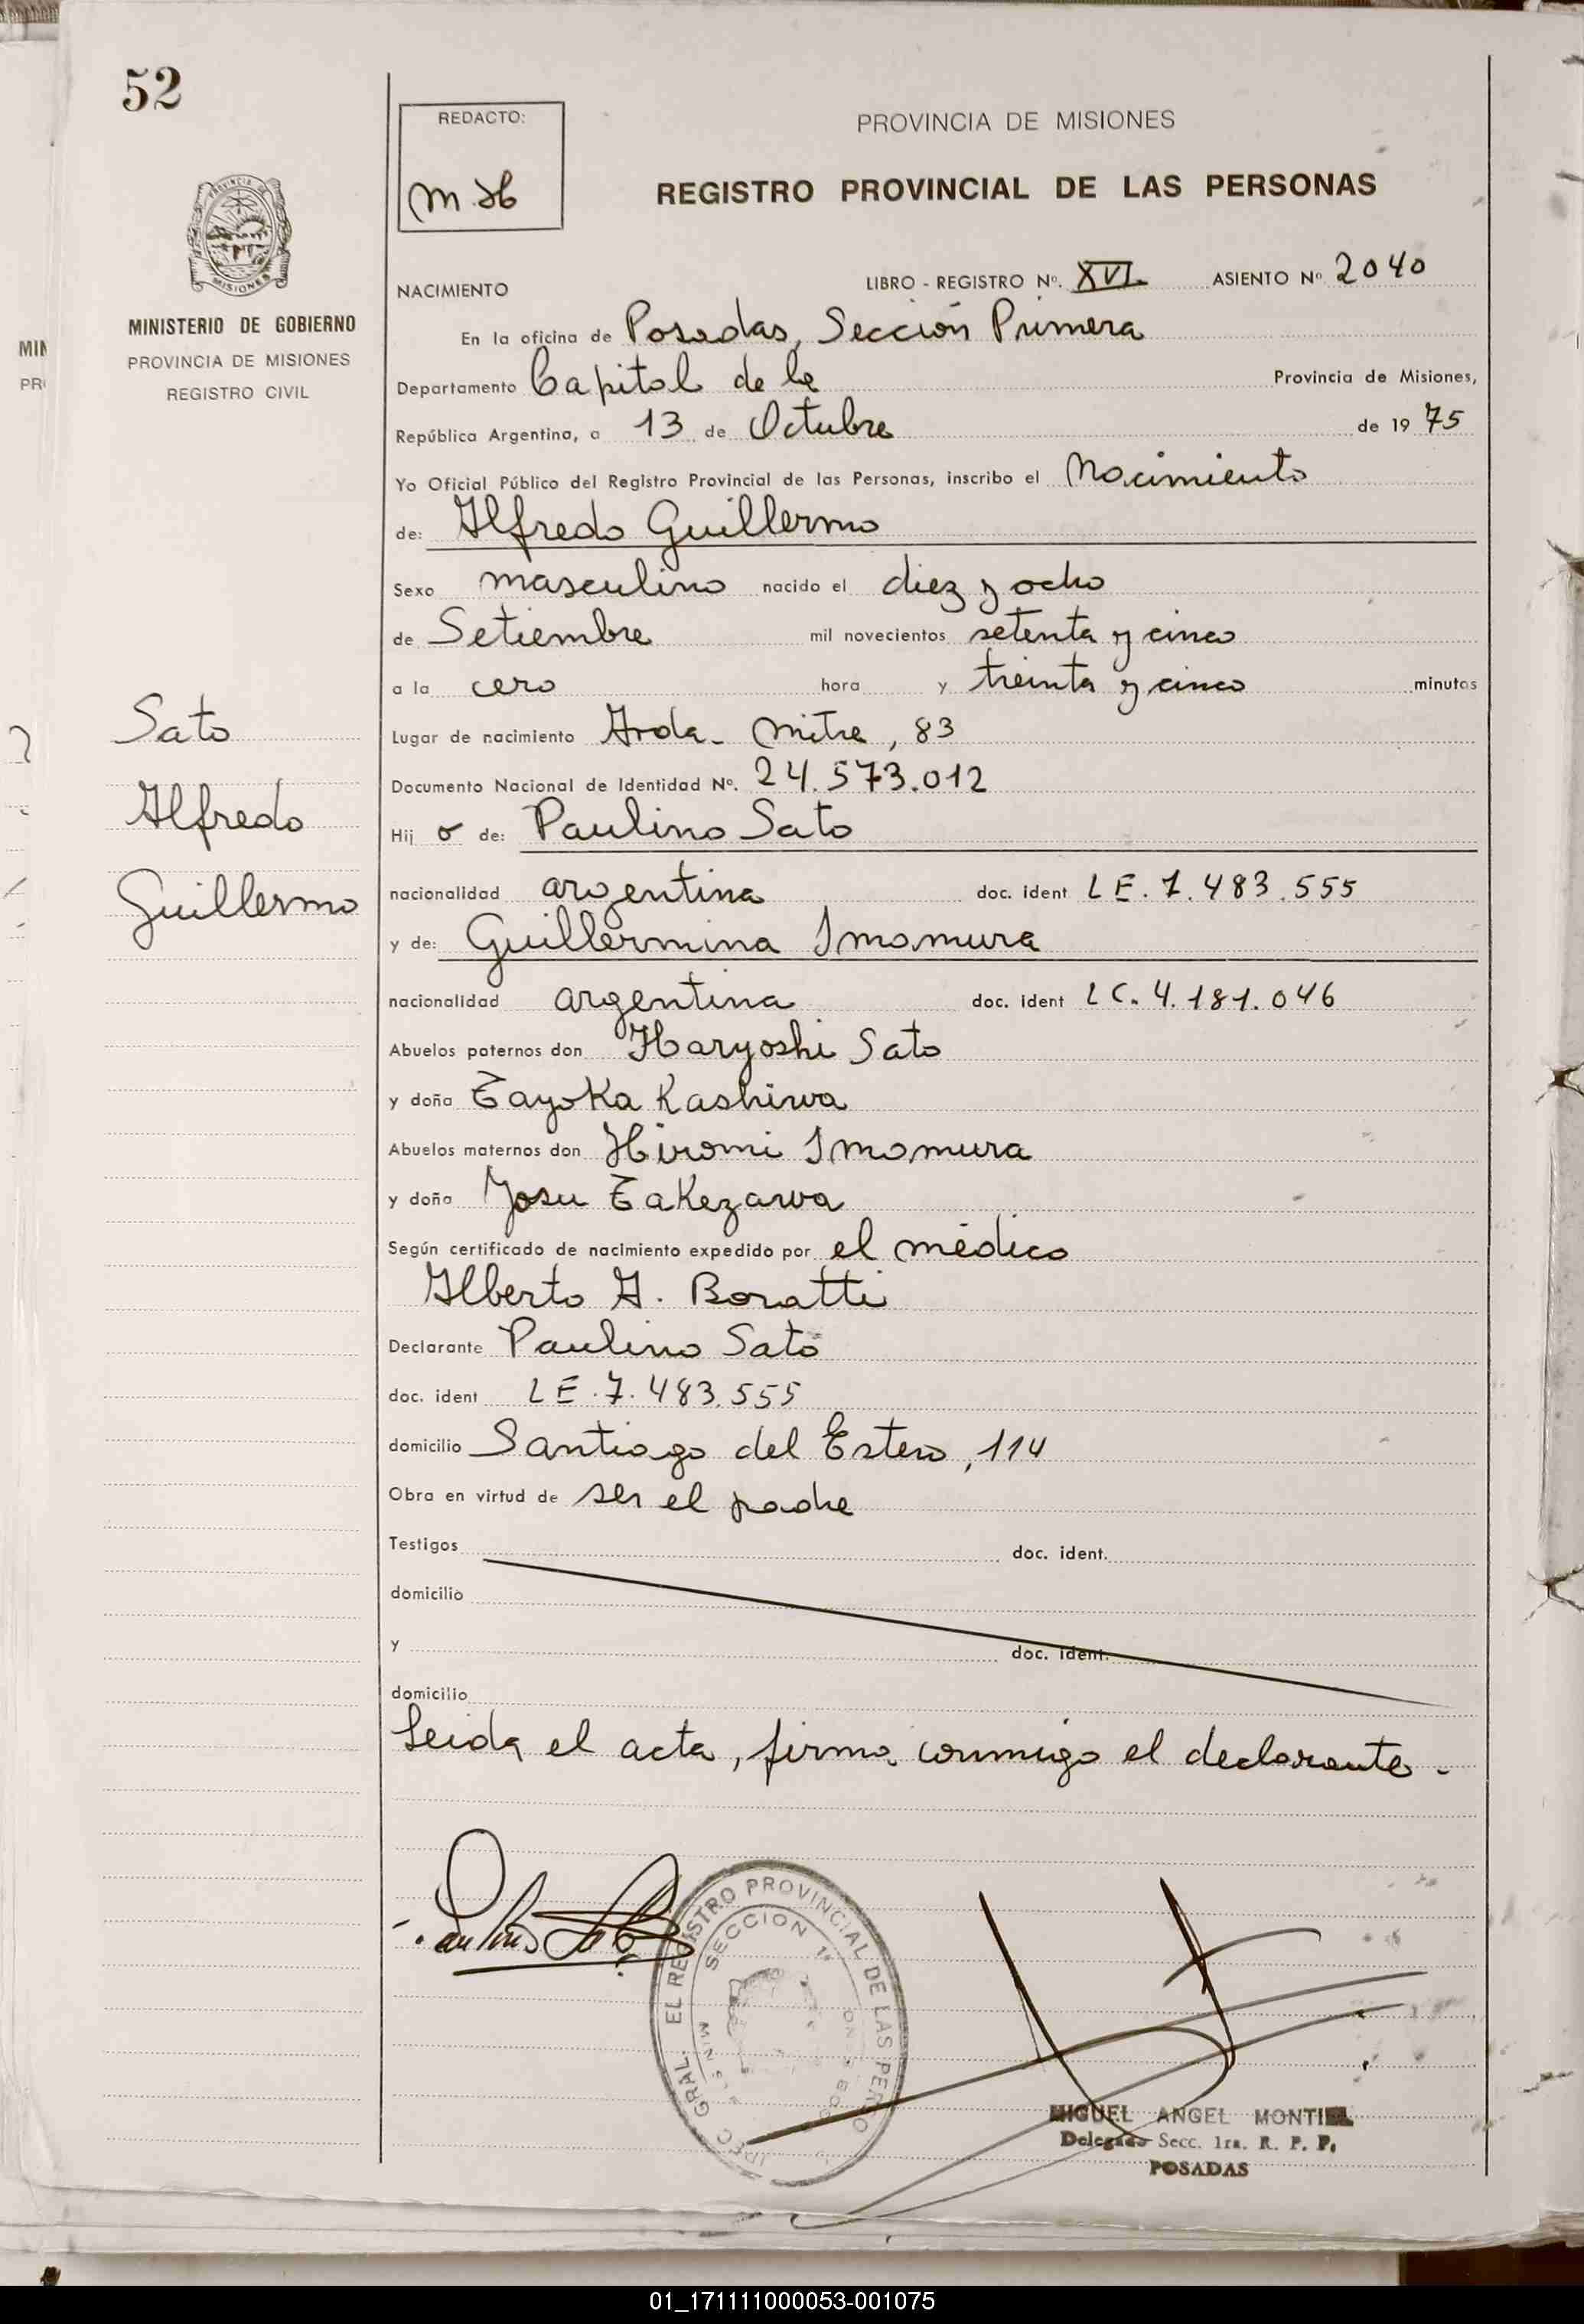 52
REDACTO:
M.H
PROVINCIA DE MISIONES
REGISTRO PROVINCIAL DE LAS PERSONAS
PROVINCIA DE
MISIONES
MINISTERIO DE GOBIERNO
PROVINCIA DE MISIONES
REGISTRO CIVIL
MIN
PR
Sato
Alfredo
Guillermo
NACIMIENTO LIBRO - REGISTRO Nº. XVI ASIENTO Nº 2040
En la oficina de Posadas, Sección Primera
Departamento Capital de la Provincia de Misiones,
República Argentina, a 13 de Octubre de 1975
Yo Oficial Público del Registro Provincial de las Personas, inscribo el Nacimiento
de: Alfredo Guillermo
Sexo masculino nacido el diez y ocho
de Setiembre mil novecientos setenta y cinco
a la cero hora y treinta y cinco minutos
Lugar de nacimiento Avda. Mitre, 83
Documento Nacional de Identidad Nº. 24.573.012
Hij o de: Paulino Sato
nacionalidad argentina doc. ident LE. 7.483.555
y de: Guillermina Imamura
nacionalidad argentina doc. ident LC. 4.181.046
Abuelos paternos don Haryoshi Sato
y doña Tayoka Kashiwa
Abuelos maternos don Hiromi Imamura
y doña Yosu Takezawa
Según certificado de nacimiento expedido por el médico
Alberto A. Boratti
Declarante Paulino Sato
doc. ident LE. 7.483.555
domicilio Santiago del Estero, 114
Obra en virtud de ser el padre
Testigos doc. ident.
domicilio
y doc. ident.
domicilio
Leida el acta, firma conmigo el declarante.
EL REGISTRO PROVINCIAL DE LAS PERSO
SECCION 1ª
GRAL.
MIGUEL ANGEL MONTIEL
Delegado Secc. 1ra. R. P. P.
POSADAS
01_171111000053-001075